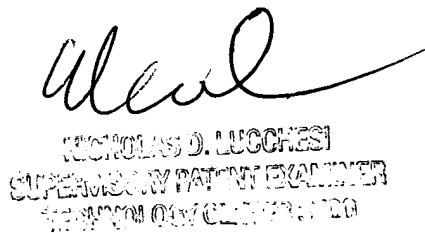 NICHOLAS D. LUCCHESI
SUPERVISORY PATENT EXAMINER
TECHNOLOGY CENTER